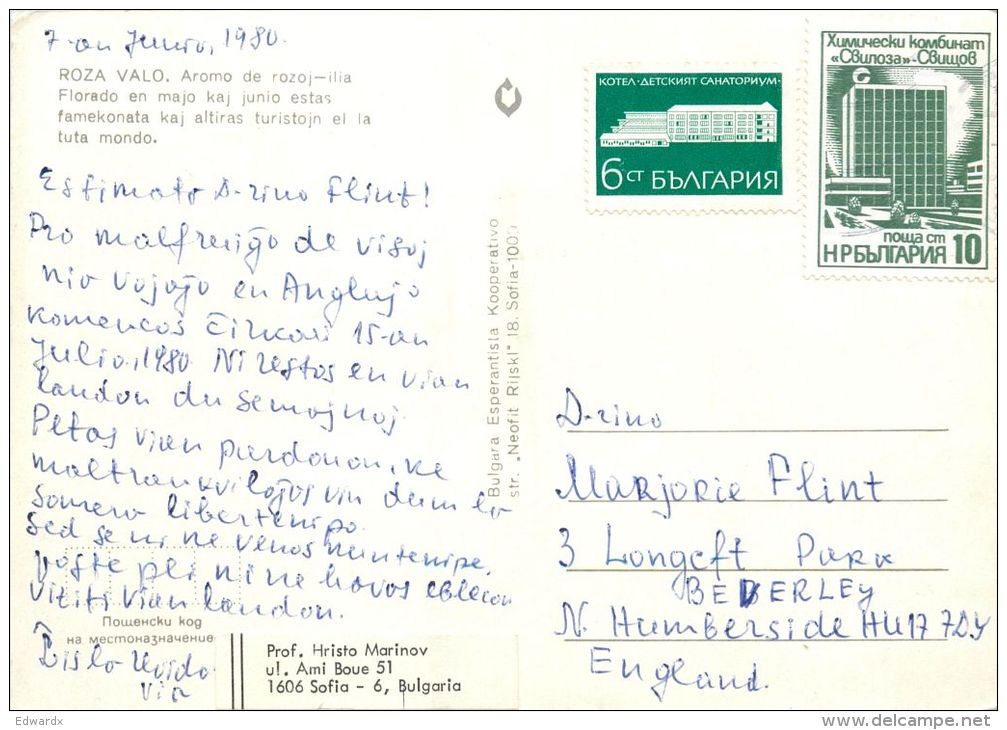 7-an Junio, 1980.
ROZA VALO. Aromo de rozoj—ilia
Florado en majo kaj junio estas
famekonata kaj altiras turistojn el la
tuta mondo.
Estimata D-rino Flint!
Pro malfruiĝo de visoj
nia vojaĝo en Anglujo
komencos ĉirkaŭ 15-an
Julio, 1980. Ni restos en vian
landon du semajnoj.
Petas vian pardonon, ke
maltrankviliĝos vin dum la
somera libertempo.
Sed se ni ne venos nuntempe,
poste pli ni ne havos eblecon
viziti vian landon.
Ĝis la revido
via
Пощенски код
на местоназначение
Prof. Hristo Marinov
ul. Ami Boue 51
1606 Sofia - 6, Bulgaria
Bulgara Esperantista Kooperativo
str. „Neofit Rilski" 18. Sofia-1000
КОТЕЛ·ДЕТСКИЯТ САНАТОРИУМ·
6СТ БЪЛГАРИЯ
Химически комбинат
«Свилоза»-Свищов
ПОЩА СТ
НРБЪЛГАРИЯ 10
D-rino
Marjorie Flint
3 Longcft Park
BEVERLEY
N. Humberside HU17 7DY
England.
Edwardx
delcampe.net